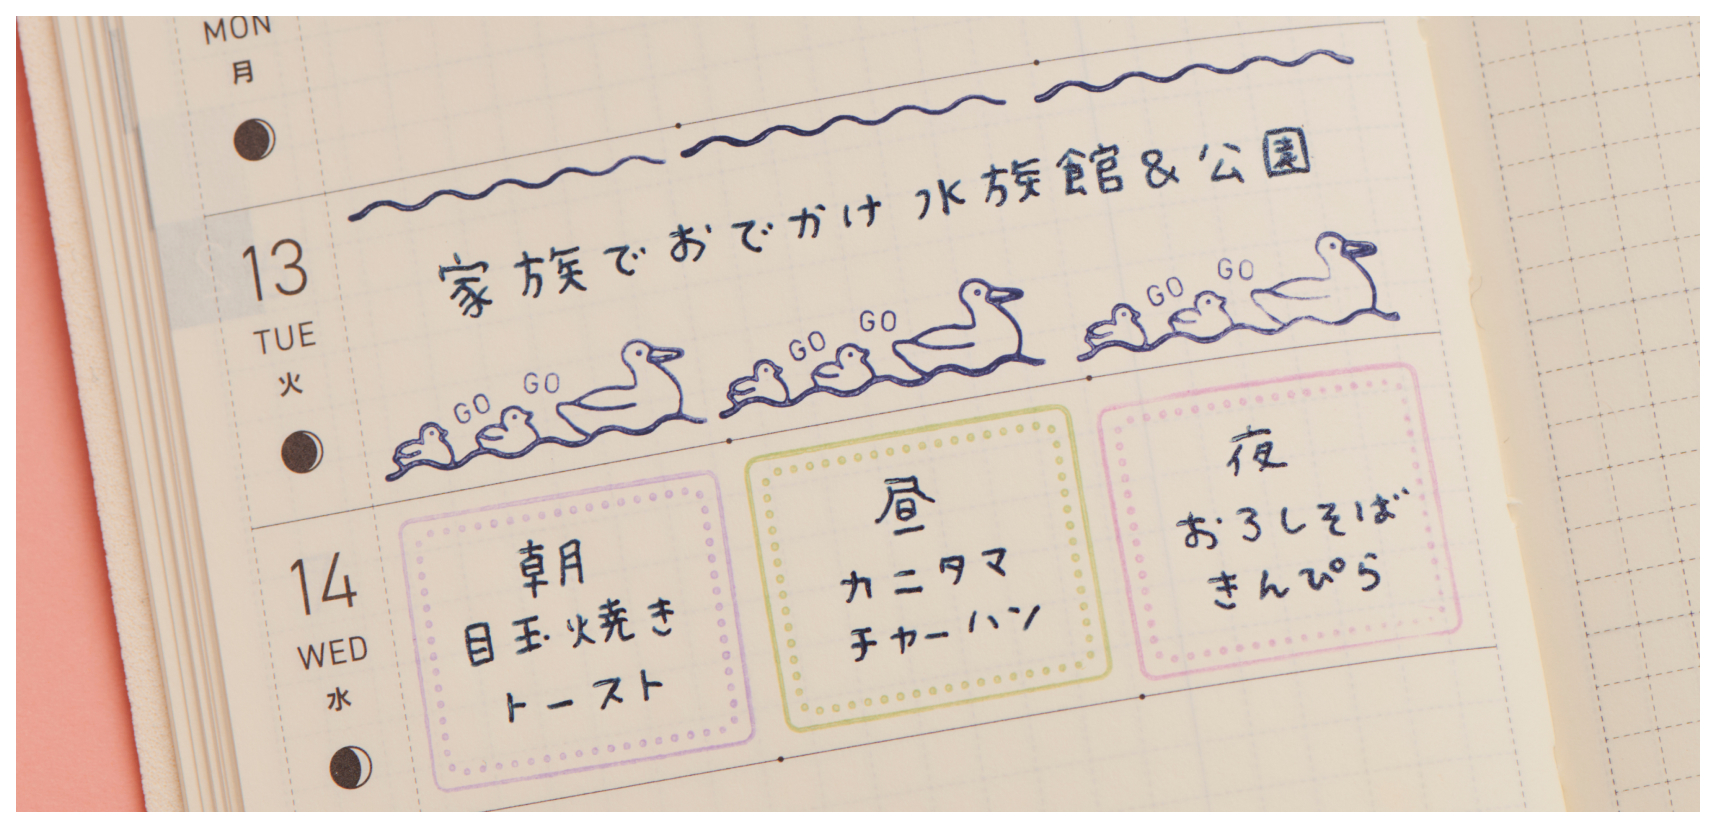 MON
月
13
TUE
火
家族でおでかけ 水族館&公園
GO GO
GO GO
GO GO
14
WED
水
朝
目玉焼き
トースト
昼
カニタマ
チャーハン
夜
おろしそば
きんぴら